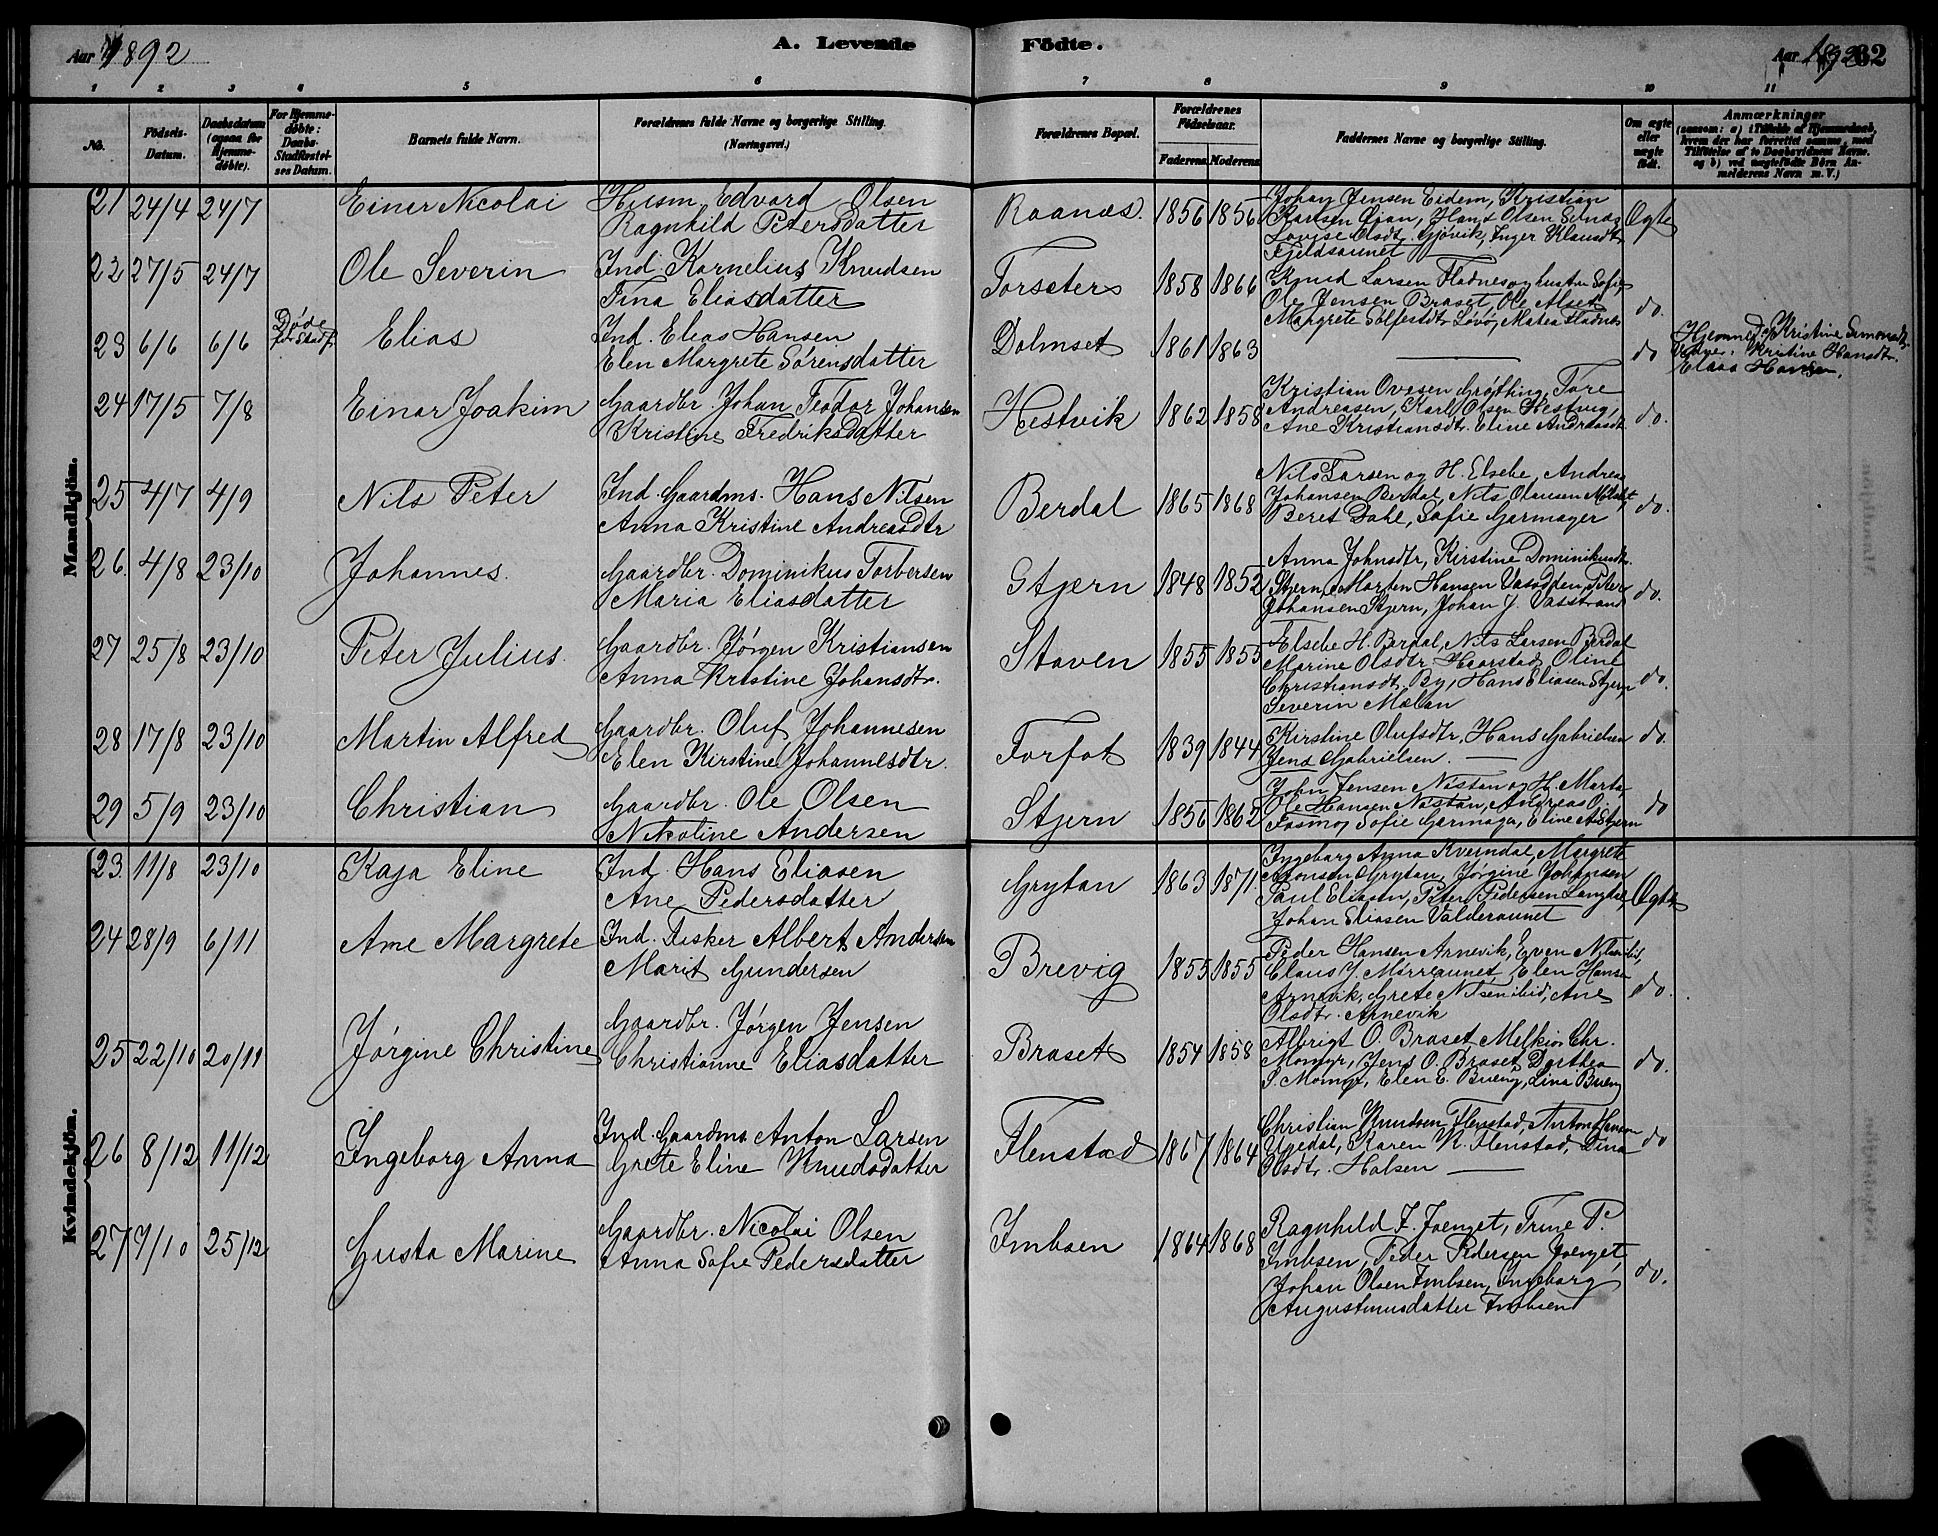 Aar 1892
A. Levende Födte.
Aar 1892 62
1 2 3 4 5 6 7 8 9 10 11
No.
Födsels-Datum.
Daabsdatum (ogsaa for Hjemmedöbte).
For Hjemmedöbte: Daabs-Stadfæstelses Datum.
Barnets fulde Navn.
Forældrenes fulde Navne og borgerlige Stilling. (Næringsvei.)
Forældrenes Bopæl.
Forældrenes Födselsaar.
Faderens. Moderens.
Faddernes Navne og borgerlige Stilling.
Om ægte eller uægte födt.
Anmærkninger
(saasom: a) i Tilfælde af Hjemmedaab, hvem der har forrettet samme, med Tilföielse af to Daabsvidners Navne, og b) ved uægtefödte Börn Anmelderens Navn m. V.)
Mandkjön.
21 24/4 24/7 Einar Nicolai Husm. Edvard Olsen
Ragnhild Petersdatter
Raanæs. 1856 1856 Johan Jensen Eidem, Kristian
Karlsen Øian, Hans Olsen Selnæs
Lovise Olsdt. Gjøvik, Inger Klausdt
Fjeldsaunet
Ægte
22 27/5 24/7 Ole Severin Ind. Kornelius Knudsen
Tina Eliasdatter
Torseter 1858 1866 Knud Larsen Fladnes og hustru Sofie,
Ole Jensen Braset, Ole Alset
Margrete Solfestdt. Løvø, Matea Fladnes
do.
23 6/6 6/6 Døde før Stadf. Elias Ind. Elias Hansen
Elen Margrete Sørensdatter
Dolmset 1861 1863 do
Hjemmed. af Kristine Simonsdt.
Kristine Hansdt.
Elias Hansen.
24 17/5 7/8 Einar Joakim Gaardbr. Johan Teodor Johansen
Kristine Fredriksdatter
Hestvik 1862 1858 Kristian Ovesen Grøfting, Tore
Andreasen, Karl Olsen Hestvig,
Ane Kristiansdt. Eline Andreasdt
do.
25 4/7 4/9 Nils Peter Ind. Gaardms. Hans Nilsen
Anna Kristine Andreasdtr
Berdal 1865 1868 Nils Larsen og H. Elsebe, Andreas
Johansen Berdal, Nils Olausen
Beret Dahl, Sofie Garmager
do.
26. 4/8 23/10 Johannes. Gaardbr. Dominikus Torbersen
Maria Eliasdatter
Stjern 1848 1852 Anna Johnsdtr, Kirstine Dominikusdt.
Stjern, Morten Hansen Vasødden, Peter
Johansen Stjern, Johan J. Vasstrand
do.
27 25/8 23/10 Peter Julius. Gaardbr. Jørgen Kristiansen
Anna Kristine Johansdtr.
Staven 1855 1855 Elsebe H. Berdal, Nils Larsen Berdal
Marine Olsdtr. Haarstad, Oline
Christiansdt. By, Hans Eliasen Stjern,
Severin Mælan
do.
28 17/8 23/10 Martin Alfred Gaardbr. Oluf Johannesen
Elen Kirstine Johannesdtr.
Forfot 1839 1844 Kirstine Olufsdtr, Hans Gabrielsen
Jens Gabrielsen.
do.
29 5/9 23/10 Christian Gaardbr. Ole Olsen
Nikoline Andersen
Stjern 1856 1862 John Jensen Næstan og H. Marta
Ole Hansen Næstan, Andreas O.
Sofie Garmager, Eline A. Stjern
do
Kvindekjön.
23. 11/8 23/10 Kaja Eline Ind. Hans Eliasen
Ane Pedersdatter
Grytan 1863 1871. Ingeborg Anna Kverndal, Margrete
Monsen Grytan, Jørgine Johansen
Paul Eliasen, Peter Pedersen
Johan Eliasen Valderaunet
Ægte
24 28/9 6/11 Ane Margrete Ind. Fisker Albert Andersen
Marit Gundersen
Brevig 1855 1855 Peder Hansen Arnevik, Even Nilsen ibid,
Claus J. Mørreaunet, Elen Hansd
Arnevik, Grete Nilsen ibid, Ane
Olsdtr. Arnevik
do.
25 22/10 20/11 Jørgine Christine Gaardbr. Jørgen Jensen
Christianne Eliasdatter
Braset 1854 1858 Albrigt O. Braset, Melkior Chr.
Momyr, Jens O. Braset, Dorthea
S. Momyr, Elen E. Bueng, Lina Bueng
do.
26 8/12 11/12 Ingeborg Anna Ind. Gaardms. Anton Larsen
Grete Eline Knudsdatter
Flenstad 1867 1864 Christian Knudsen Flenstad, Anton Hansen
Ugedal, Karen K. Flenstad, Lina
Olsdtr. Halsen
do
27 7/10 25/12 Gusta Marine Gaardbr. Nicolai Olsen
Anna Sofie Pedersdatter
Imbsen 1864 1868 Ragnhild F. Joenget, Trine P.
Imbsen, Peder Pedersen Joenget,
Johan Olsen Imbsen, Ingeborg
Augustinusdatter Imbsen
do.